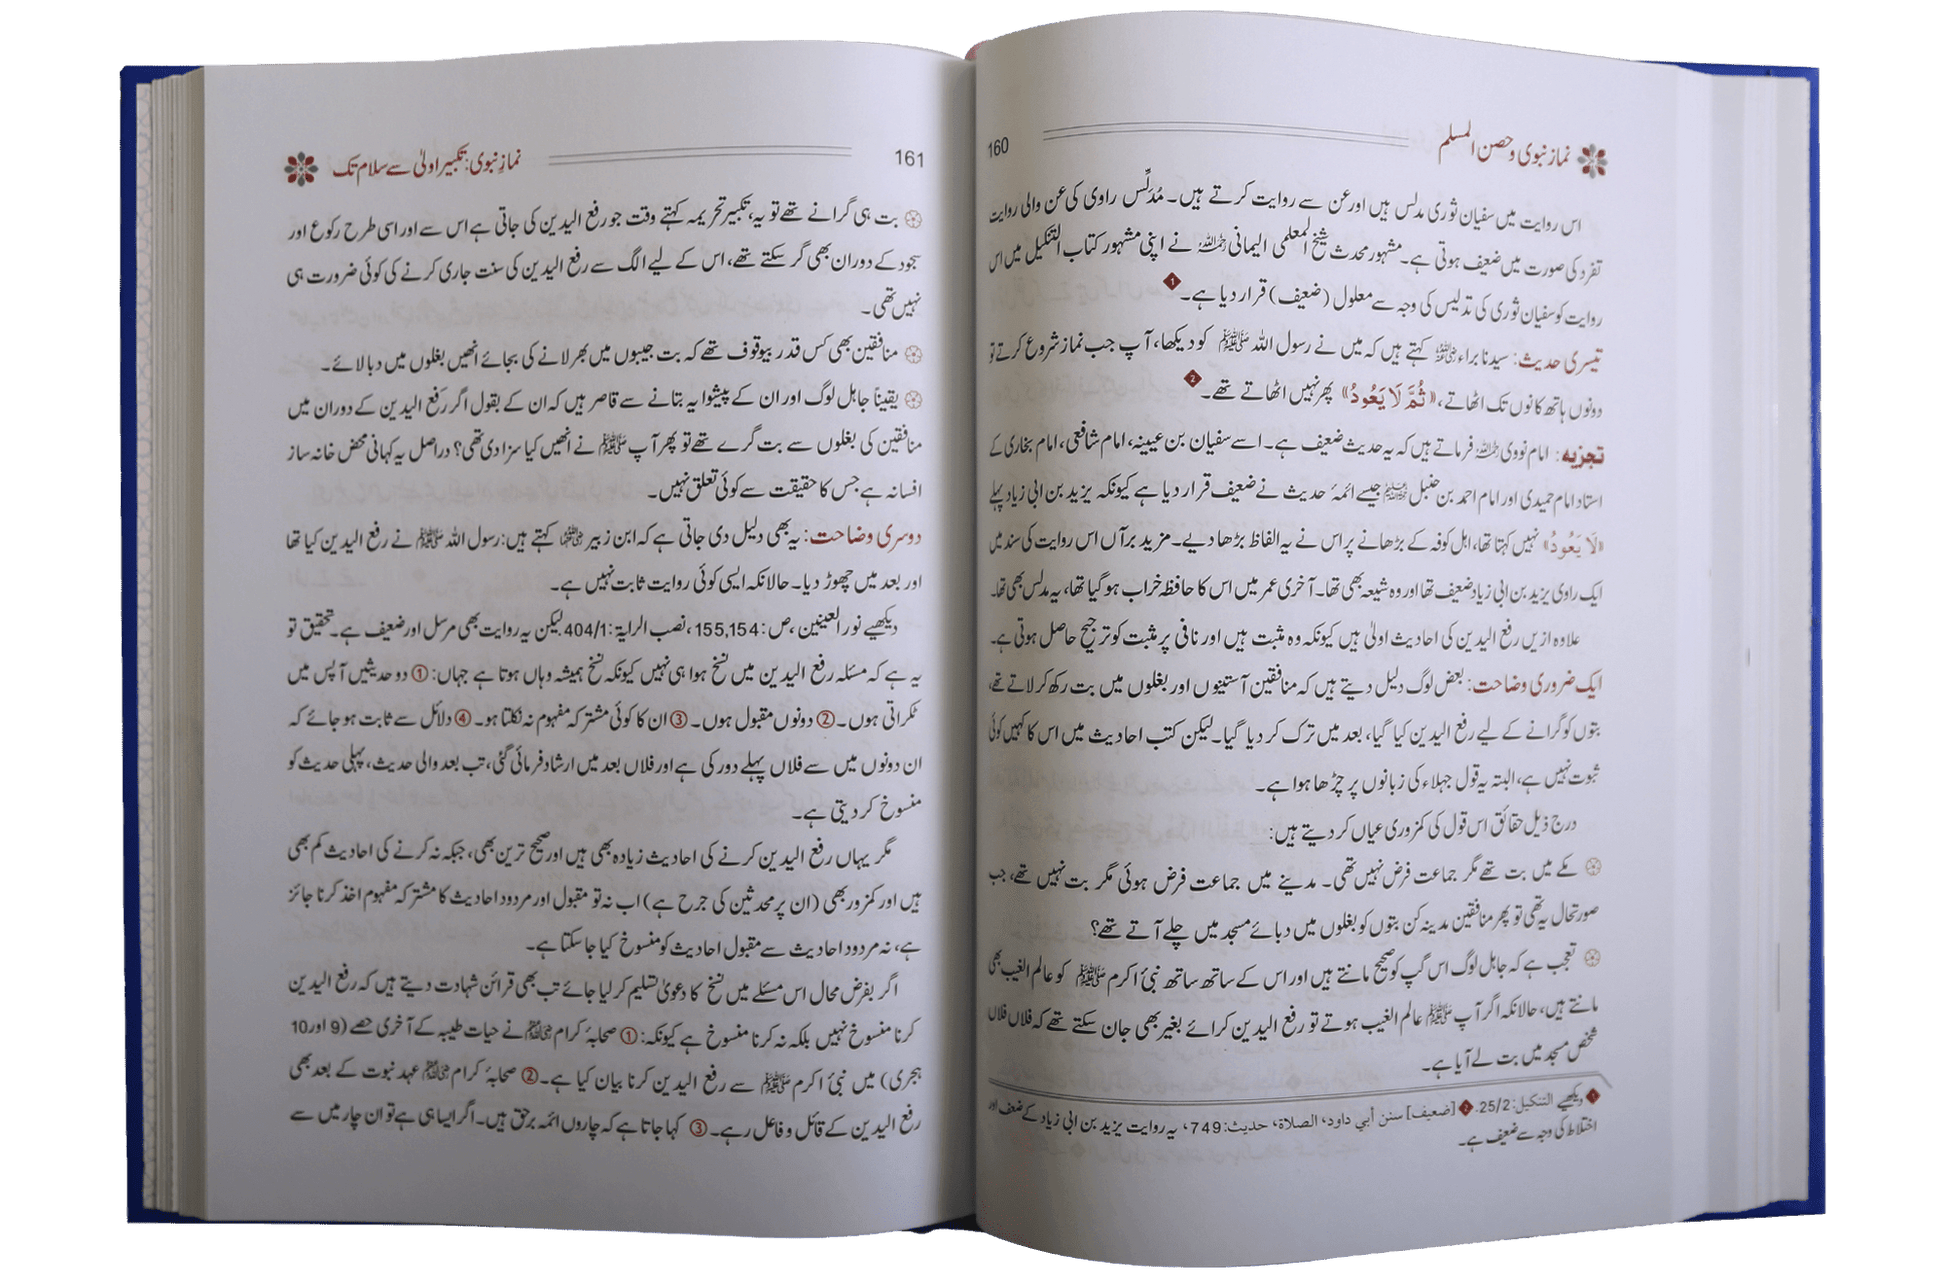 نماز نبوی و حصن المسلم
160
اس روایت میں سفیان ثوری مدلس ہیں اور عن سے روایت کرتے ہیں۔ مُدَلِّس راوی کی عن والی روایت
تفرد کی صورت میں ضعیف ہوتی ہے۔ مشہور محدث شیخ المعلمی الیمانی رحمہ اللہ نے اپنی مشہور کتاب التنکیل میں اس
روایت کو سفیان ثوری کی تدلیس کی وجہ سے معلول (ضعیف) قرار دیا ہے۔ 1
تیسری حدیث: سیدنا براء رضی اللہ عنہ کہتے ہیں کہ میں نے رسول اللہ ﷺ کو دیکھا، آپ جب نماز شروع کرتے تو
دونوں ہاتھ کانوں تک اٹھاتے، «ثُمَّ لَا یَعُودُ» پھر نہیں اٹھاتے تھے۔ 2
تجزیہ: امام نووی رحمہ اللہ فرماتے ہیں کہ یہ حدیث ضعیف ہے۔ اسے سفیان بن عیینہ، امام شافعی، امام بخاری کے
استاد امام حمیدی اور امام احمد بن حنبل رحمہم اللہ جیسے ائمۂ حدیث نے ضعیف قرار دیا ہے کیونکہ یزید بن ابی زیاد پہلے
«لَا یَعُودُ» نہیں کہتا تھا، اہل کوفہ کے بڑھانے پر اس نے یہ الفاظ بڑھا دیے۔ مزید برآں اس روایت کی سند میں
ایک راوی یزید بن ابی زیاد ضعیف تھا اور وہ شیعہ بھی تھا۔ آخری عمر میں اس کا حافظہ خراب ہو گیا تھا، یہ مدلس بھی تھا۔
علاوہ ازیں رفع الیدین کی احادیث اولیٰ ہیں کیونکہ وہ مثبت ہیں اور نافی پر مثبت کو ترجیح حاصل ہوتی ہے۔
ایک ضروری وضاحت: بعض لوگ دلیل دیتے ہیں کہ منافقین آستینوں اور بغلوں میں بت رکھ کر لاتے تھے،
بتوں کو گرانے کے لیے رفع الیدین کیا گیا، بعد میں ترک کر دیا گیا۔ لیکن کتب احادیث میں اس کا کہیں کوئی
ثبوت نہیں ہے، البتہ یہ قول جہلاء کی زبانوں پر چڑھا ہوا ہے۔
درج ذیل حقائق اس قول کی کمزوری عیاں کر دیتے ہیں:
مکے میں بت تھے مگر جماعت فرض نہیں تھی۔ مدینے میں جماعت فرض ہوئی مگر بت نہیں تھے، جب
صورتحال یہ تھی تو پھر منافقین مدینہ کن بتوں کو بغلوں میں دبائے مسجد میں چلے آتے تھے؟
تعجب ہے کہ جاہل لوگ اس گپ کو صحیح مانتے ہیں اور اس کے ساتھ ساتھ نبیٔ اکرم ﷺ کو عالم الغیب بھی
مانتے ہیں، حالانکہ اگر آپ ﷺ عالم الغیب ہوتے تو رفع الیدین کرائے بغیر بھی جان سکتے تھے کہ فلاں فلاں
شخص مسجد میں بت لے آیا ہے۔
1 دیکھیے التنکیل: 25/2. 2 [ضعیف] سنن أبي داود، الصلاة، حدیث: 749، یہ روایت یزید بن ابی زیاد کے ضعف اور
اختلاط کی وجہ سے ضعیف ہے۔
161
نمازِ نبوی: تکبیر اولیٰ سے سلام تک
بت ہی گرانے تھے تو یہ، تکبیر تحریمہ کہتے وقت جو رفع الیدین کی جاتی ہے اس سے اور اسی طرح رکوع اور
سجود کے دوران بھی گر سکتے تھے، اس کے لیے الگ سے رفع الیدین کی سنت جاری کرنے کی کوئی ضرورت ہی
نہیں تھی۔
منافقین بھی کس قدر بیوقوف تھے کہ بت جیبوں میں بھر لانے کی بجائے انھیں بغلوں میں دبا لائے۔
یقیناً جاہل لوگ اور ان کے پیشوا یہ بتانے سے قاصر ہیں کہ ان کے بقول اگر رفع الیدین کے دوران میں
منافقین کی بغلوں سے بت گرے تھے تو پھر آپ ﷺ نے انھیں کیا سزا دی تھی؟ دراصل یہ کہانی محض خانہ ساز
افسانہ ہے جس کا حقیقت سے کوئی تعلق نہیں۔
دوسری وضاحت: یہ بھی دلیل دی جاتی ہے کہ ابن زبیر رضی اللہ عنہما کہتے ہیں: رسول اللہ ﷺ نے رفع الیدین کیا تھا
اور بعد میں چھوڑ دیا۔ حالانکہ ایسی کوئی روایت ثابت نہیں ہے۔
دیکھیے نور العینین، ص: 155,154، نصب الرایۃ: 404/1 لیکن یہ روایت بھی مرسل اور ضعیف ہے۔ تحقیق تو
یہ ہے کہ مسئلہ رفع الیدین میں نسخ ہوا ہی نہیں کیونکہ نسخ ہمیشہ وہاں ہوتا ہے جہاں: ① دو حدیثیں آپس میں
ٹکراتی ہوں۔ ② دونوں مقبول ہوں۔ ③ ان کا کوئی مشترکہ مفہوم نہ نکلتا ہو۔ ④ دلائل سے ثابت ہو جائے کہ
ان دونوں میں سے فلاں پہلے دور کی ہے اور فلاں بعد میں ارشاد فرمائی گئی، تب بعد والی حدیث، پہلی حدیث کو
منسوخ کر دیتی ہے۔
مگر یہاں رفع الیدین کرنے کی احادیث زیادہ بھی ہیں اور صحیح ترین بھی، جبکہ نہ کرنے کی احادیث کم بھی
ہیں اور کمزور بھی (ان پر محدثین کی جرح ہے) اب نہ تو مقبول اور مردود احادیث کا مشترکہ مفہوم اخذ کرنا جائز
ہے، نہ مردود احادیث سے مقبول احادیث کو منسوخ کیا جا سکتا ہے۔
اگر بفرض محال اس مسئلے میں نسخ کا دعویٰ تسلیم کر لیا جائے تب بھی قرائن شہادت دیتے ہیں کہ رفع الیدین
کرنا منسوخ نہیں بلکہ نہ کرنا منسوخ ہے کیونکہ: ① صحابۂ کرام رضی اللہ عنہم نے حیات طیبہ کے آخری حصے (9 اور 10
ہجری) میں نبیٔ اکرم ﷺ سے رفع الیدین کرنا بیان کیا ہے۔ ② صحابۂ کرام رضی اللہ عنہم عہد نبوت کے بعد بھی
رفع الیدین کے قائل و فاعل رہے۔ ③ کہا جاتا ہے کہ چاروں ائمہ برحق ہیں۔ اگر ایسا ہی ہے تو ان چار میں سے